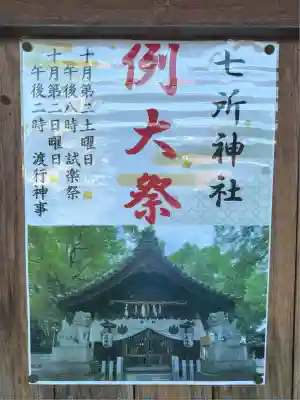 七所神社
例大祭
十月第二土曜日
午後八時 試楽祭
十月第二日曜日
午後二時 渡行神事